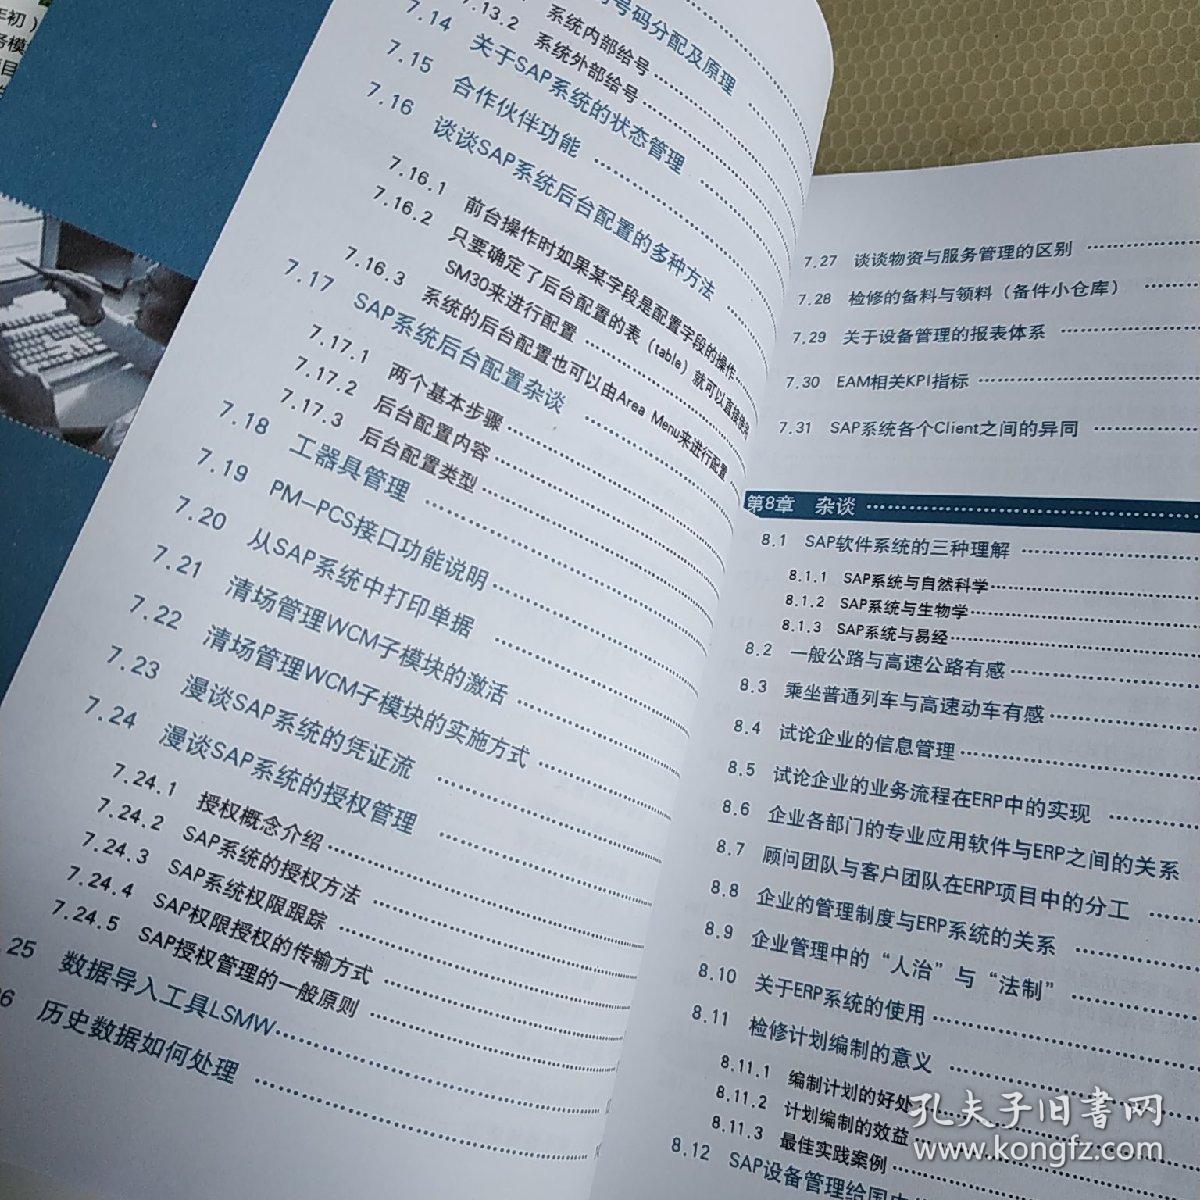 年初）
号码分配及原理
7.13.2 系统内部给号
系统外部给号
7.14 关于SAP系统的状态管理
7.15 合作伙伴功能
7.16 谈谈SAP系统后台配置的多种方法
7.16.1 前台操作时如果某字段是配置字段的操作
7.16.2 只要确定了后台配置的表（table）就可以直接
SM30来进行配置
7.16.3 系统的后台配置也可以由Area Menu来进行配置
7.17 SAP系统后台配置杂谈
7.17.1 两个基本步骤
7.17.2 后台配置内容
7.17.3 后台配置类型
7.18 工器具管理
7.19 PM-PCS接口功能说明
7.20 从SAP系统中打印单据
7.21 清场管理WCM子模块的激活
7.22 清场管理WCM子模块的实施方式
7.23 漫谈SAP系统的凭证流
7.24 漫谈SAP系统的授权管理
7.24.1 授权概念介绍
7.24.2 SAP系统的授权方法
7.24.3 SAP系统权限跟踪
7.24.4 SAP权限授权的传输方式
7.24.5 SAP授权管理的一般原则
25 数据导入工具LSMW
26 历史数据如何处理
7.27 谈谈物资与服务管理的区别
7.28 检修的备料与领料（备件小仓库）
7.29 关于设备管理的报表体系
7.30 EAM相关KPI指标
7.31 SAP系统各个Client之间的异同
第8章 杂谈
8.1 SAP软件系统的三种理解
8.1.1 SAP系统与自然科学
8.1.2 SAP系统与生物学
8.1.3 SAP系统与易经
8.2 一般公路与高速公路有感
8.3 乘坐普通列车与高速动车有感
8.4 试论企业的信息管理
8.5 试论企业的业务流程在ERP中的实现
8.6 企业各部门的专业应用软件与ERP之间的关系
8.7 顾问团队与客户团队在ERP项目中的分工
8.8 企业的管理制度与ERP系统的关系
8.9 企业管理中的“人治”与“法制”
8.10 关于ERP系统的使用
8.11 检修计划编制的意义
8.11.1 编制计划的好处
8.11.2 计划编制的效益
8.11.3 最佳实践案例
8.12 SAP设备管理给国
孔夫子旧书网
www.kongfz.com